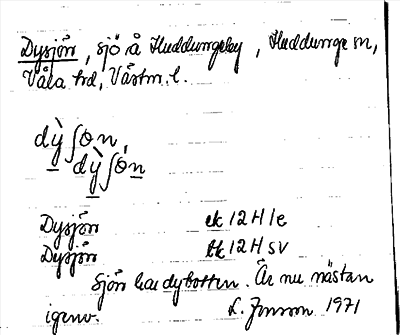 Dysjön, sjö å Huddungeby, Huddunge sn,
Våla hd, Västm. l.
dỳʃōn,
dỳʃṓn
Dysjön ek 12 H 1 e
Dysjön tk 12 H SV
Sjön har dybotten. Är nu nästan
igenv. L. Jonsson 1971